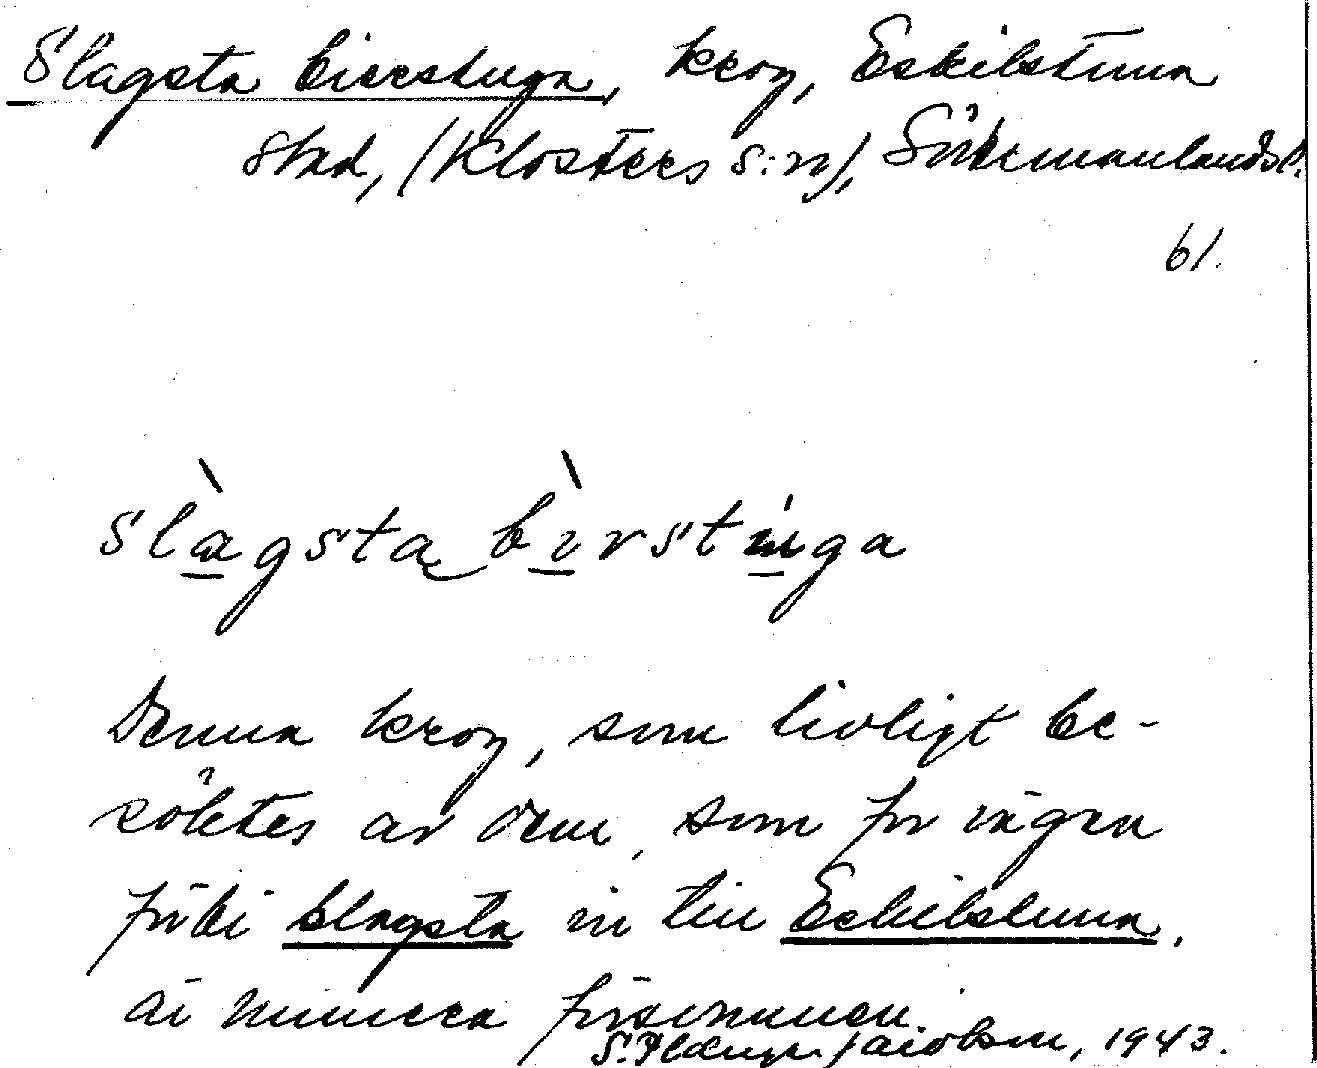 Slagsta bierstuga, krog, Eskilstuna
stad, (Klosters s:n), Södermanlands l.
61.
slàgsta bìrstuga
Denna krog, som livligt be-
söktes av dem, som for vägen
förbi Slagsta in till Eskilstuna,
är numera försvunnen.
S. Jacobson, 1943.